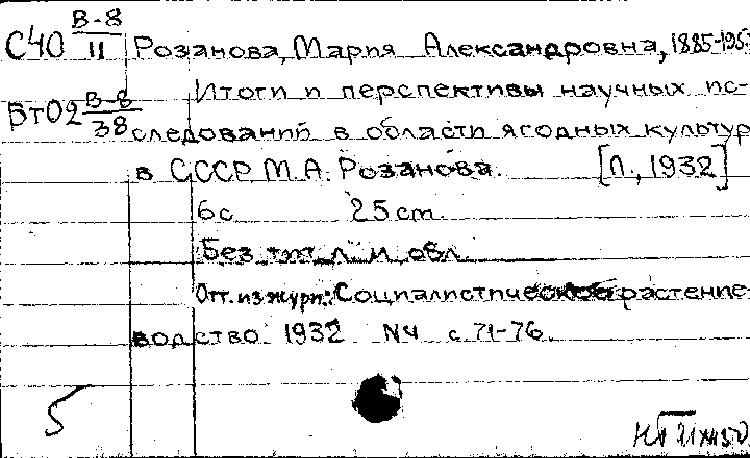 С40 В-8/II Розанова, Мария Александровна, 1885-195
Итоги и перспективы научных ис-
Вт02 В-8/38 следований в области ягодных культур
в СССР М.А. Розанова. [Л., 1932]
6с 25cm.
Без тит. л. и обл.
Отт. из журн.: Социалистическое растение-
водство 1932 №4 с. 71-76.
5